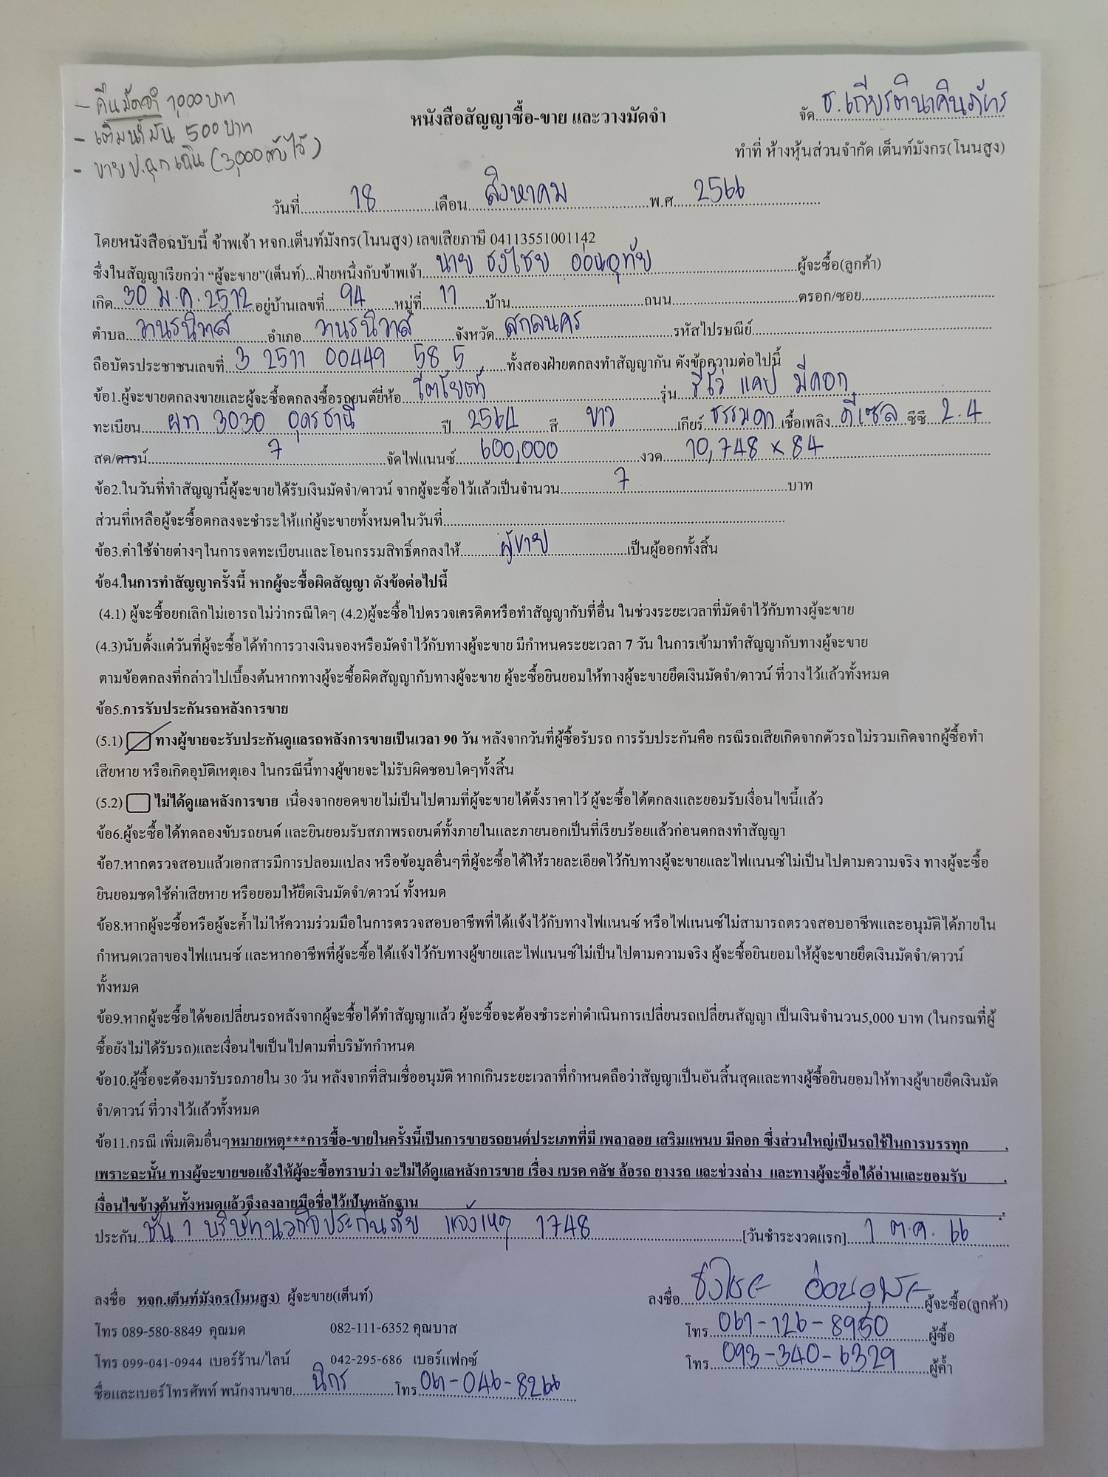 - คืนมัดจำ 1,000 บาท
- เติมน้ำมัน 500 บาท
- ขาย ป.ฉุกเฉิน (3,000 ไว้)
หนังสือสัญญาซื้อ-ขาย และวางมัดจำ
จัด ธ.เกียรตินาคินภัทร
ทำที่ ห้างหุ้นส่วนจำกัด เต็นท์มังกร(โนนสูง)
วันที่ 18 เดือน สิงหาคม พ.ศ. 2566
โดยหนังสือฉบับนี้ ข้าพเจ้า หจก.เต็นท์มังกร(โนนสูง) เลขเสียภาษี 04113551001142
ซึ่งในสัญญาเรียกว่า "ผู้จะขาย"(เต็นท์)...ฝ่ายหนึ่งกับข้าพเจ้า นาย ธงไชย อ่อนอุทัย ผู้จะซื้อ(ลูกค้า)
เกิด 30 ม.ค. 2512 อยู่บ้านเลขที่ 94 หมู่ที่ 11 บ้าน ถนน ตรอก/ซอย
ตำบล วานรนิวาส อำเภอ วานรนิวาส จังหวัด สกลนคร รหัสไปรษณีย์
ถือบัตรประชาชนเลขที่ 3 2511 00449 58 5 ทั้งสองฝ่ายตกลงทำสัญญากัน ดังข้อความต่อไปนี้
ข้อ1.ผู้จะขายตกลงขายและผู้จะซื้อตกลงซื้อรถยนต์ยี่ห้อ โตโยต้า รุ่น รีโว่ แคป มีคอก
ทะเบียน ผท 3030 อุดรธานี ปี 2564 สี ขาว เกียร์ ธรรมดา เชื้อเพลิง ดีเซล ซีซี 2.4
สด/ดาวน์ 7 จัดไฟแนนซ์ 600,000 งวด 10,748 x 84
ข้อ2.ในวันที่ทำสัญญานี้ผู้จะขายได้รับเงินมัดจำ/ดาวน์ จากผู้จะซื้อไว้แล้วเป็นจำนวน 7 บาท
ส่วนที่เหลือผู้จะซื้อตกลงจะชำระให้แก่ผู้จะขายทั้งหมดในวันที่
ข้อ3.ค่าใช้จ่ายต่างๆในการจดทะเบียนและโอนกรรมสิทธิ์ตกลงให้ ผู้ขาย เป็นผู้ออกทั้งสิ้น
ข้อ4.ในการทำสัญญาครั้งนี้ หากผู้จะซื้อผิดสัญญา ดังข้อต่อไปนี้
(4.1) ผู้จะซื้อยกเลิกไม่เอารถไม่ว่ากรณีใดๆ (4.2)ผู้จะซื้อไปตรวจเครดิตหรือทำสัญญากับที่อื่น ในช่วงระยะเวลาที่มัดจำไว้กับทางผู้จะขาย
(4.3)นับตั้งแต่วันที่ผู้จะซื้อได้ทำการวางเงินจองหรือมัดจำไว้กับทางผู้จะขาย มีกำหนดระยะเวลา 7 วัน ในการเข้ามาทำสัญญากับทางผู้จะขาย
ตามข้อตกลงที่กล่าวไปเบื้องต้นหากทางผู้จะซื้อผิดสัญญากับทางผู้จะขาย ผู้จะซื้อยินยอมให้ทางผู้จะขายยึดเงินมัดจำ/ดาวน์ ที่วางไว้แล้วทั้งหมด
ข้อ5.การรับประกันรถหลังการขาย
(5.1) ทางผู้ขายจะรับประกันดูแลรถหลังการขายเป็นเวลา 90 วัน หลังจากวันที่ผู้ซื้อรับรถ การรับประกันคือ กรณีรถเสียเกิดจากตัวรถไม่รวมเกิดจากผู้ซื้อทำ
เสียหาย หรือเกิดอุบัติเหตุเอง ในกรณีนี้ทางผู้ขายจะไม่รับผิดชอบใดๆทั้งสิ้น
(5.2) ไม่ได้ดูแลหลังการขาย เนื่องจากยอดขายไม่เป็นไปตามที่ผู้จะขายได้ตั้งราคาไว้ ผู้จะซื้อได้ตกลงและยอมรับเงื่อนไขนี้แล้ว
ข้อ6.ผู้จะซื้อได้ทดลองขับรถยนต์ และยินยอมรับสภาพรถยนต์ทั้งภายในและภายนอกเป็นที่เรียบร้อยแล้วก่อนตกลงทำสัญญา
ข้อ7.หากตรวจสอบแล้วเอกสารมีการปลอมแปลง หรือข้อมูลอื่นๆที่ผู้จะซื้อได้ให้รายละเอียดไว้กับทางผู้จะขายและไฟแนนซ์ไม่เป็นไปตามความจริง ทางผู้จะซื้อ
ยินยอมชดใช้ค่าเสียหาย หรือยอมให้ยึดเงินมัดจำ/ดาวน์ ทั้งหมด
ข้อ8.หากผู้จะซื้อหรือผู้จะค้ำไม่ให้ความร่วมมือในการตรวจสอบอาชีพที่ได้แจ้งไว้กับทางไฟแนนซ์ หรือไฟแนนซ์ไม่สามารถตรวจสอบอาชีพและอนุมัติได้ภายใน
กำหนดเวลาของไฟแนนซ์ และหากอาชีพที่ผู้จะซื้อได้แจ้งไว้กับทางผู้ขายและไฟแนนซ์ไม่เป็นไปตามความจริง ผู้จะซื้อยินยอมให้ผู้จะขายยึดเงินมัดจำ/ดาวน์
ทั้งหมด
ข้อ9.หากผู้จะซื้อได้ขอเปลี่ยนรถหลังจากผู้จะซื้อได้ทำสัญญาแล้ว ผู้จะซื้อจะต้องชำระค่าดำเนินการเปลี่ยนรถเปลี่ยนสัญญา เป็นเงินจำนวน5,000 บาท (ในกรณที่ผู้
ซื้อยังไม่ได้รับรถ)และเงื่อนไขเป็นไปตามที่บริษัทกำหนด
ข้อ10.ผู้ซื้อจะต้องมารับรถภายใน 30 วัน หลังจากที่สินเชื่ออนุมัติ หากเกินระยะเวลาที่กำหนดถือว่าสัญญาเป็นอันสิ้นสุดและทางผู้ซื้อยินยอมให้ทางผู้ขายยึดเงินมัด
จำ/ดาวน์ ที่วางไว้แล้วทั้งหมด
ข้อ11.กรณี เพิ่มเติมอื่นๆหมายเหตุ***การซื้อ-ขายในครั้งนี้เป็นการขายรถยนต์ประเภทที่มี เพลาลอย เสริมแหนบ มีคอก ซึ่งส่วนใหญ่เป็นรถใช้ในการบรรทุก
เพราะฉะนั้น ทางผู้จะขายขอแจ้งให้ผู้จะซื้อทราบว่า จะไม่ได้ดูแลหลังการขาย เรื่อง เบรค คลัช ล้อรถ ยางรถ และช่วงล่าง และทางผู้จะซื้อได้อ่านและยอมรับ
เงื่อนไขข้างต้นทั้งหมดแล้วจึงลงลายมือชื่อไว้เป็นหลักฐาน
ประกัน ชั้น 1 บริษัทนวกิจประกันภัย แจ้งเหตุ 1748 [วันชำระงวดแรก] 1 ต.ค. 66
ลงชื่อ หจก.เต็นท์มังกร(โนนสูง) ผู้จะขาย(เต็นท์) ลงชื่อ ธงไชย อ่อนอุทัย ผู้จะซื้อ(ลูกค้า)
โทร 089-580-8849 คุณมด 082-111-6352 คุณบาส โทร 061-126-8950 ผู้ซื้อ
โทร 099-041-0944 เบอร์ร้าน/ไลน์ 042-295-686 เบอร์แฟกซ์ โทร 093-340-6329 ผู้ค้ำ
ชื่อและเบอร์โทรศัพท์ พนักงานขาย นิกร โทร 061-046-8266